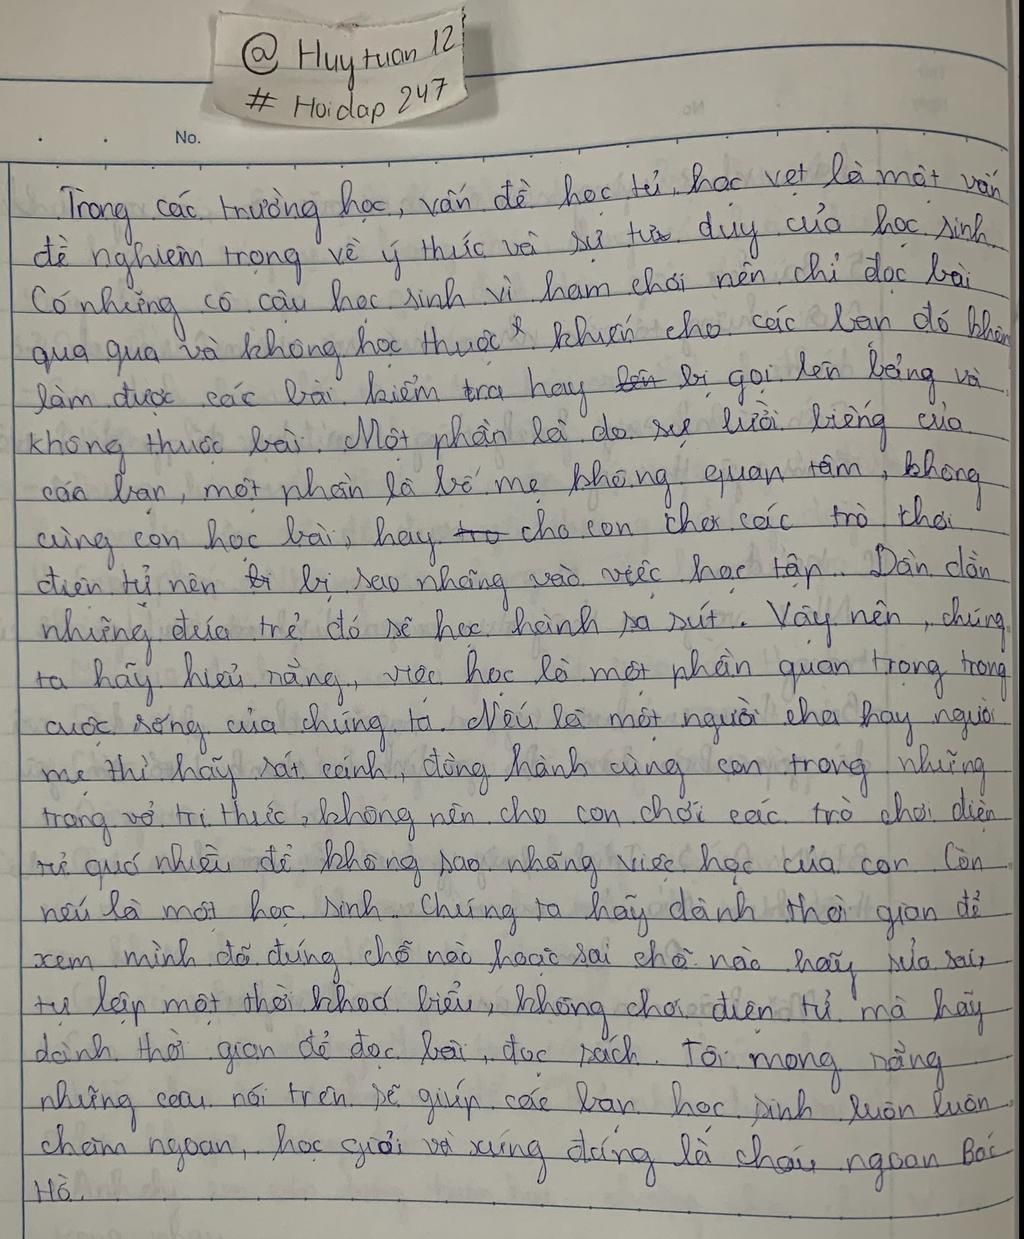 @ Huytuan 12
# Hoidap 247
No.
Trong các trường học, vấn đề học tủ, học vẹt là một vấn
đề nghiêm trọng về ý thức và sự tư duy của học sinh
Có những cô cậu học sinh vì ham chơi nên chỉ đọc bài
qua qua và không học thuộc khiến cho các bạn đó không
làm được các bài kiểm tra hay bị gọi lên bảng và
không thuộc bài. Một phần là do sự lười biếng của
các bạn, một phần là bố mẹ không quan tâm, không
cùng con học bài, hay cho con chơi các trò chơi
điện tử nên bị sao nhãng vào việc học tập. Dần dần
những đứa trẻ đó sẽ học hành sa sút. Vậy nên, chúng
ta hãy hiểu rằng, việc học là một phần quan trọng trong
cuộc sống của chúng ta. Nếu là một người cha hay người
mẹ thì hãy sát cánh, đồng hành cùng con trong những
trang vở tri thức, không nên cho con chơi các trò chơi điện
tử quá nhiều để không sao nhãng việc học của con. Còn
nếu là một học sinh. Chúng ta hãy dành thời gian để
xem mình đã đúng chỗ nào hoặc sai chỗ nào hãy sửa sai,
tự lập một thời khoá biểu, không chơi điện tử mà hãy
dành thời gian để đọc bài, đọc sách. Tôi mong rằng
những câu nói trên sẽ giúp các bạn học sinh luôn luôn
chăm ngoan, học giỏi và xứng đáng là cháu ngoan Bác
Hồ.